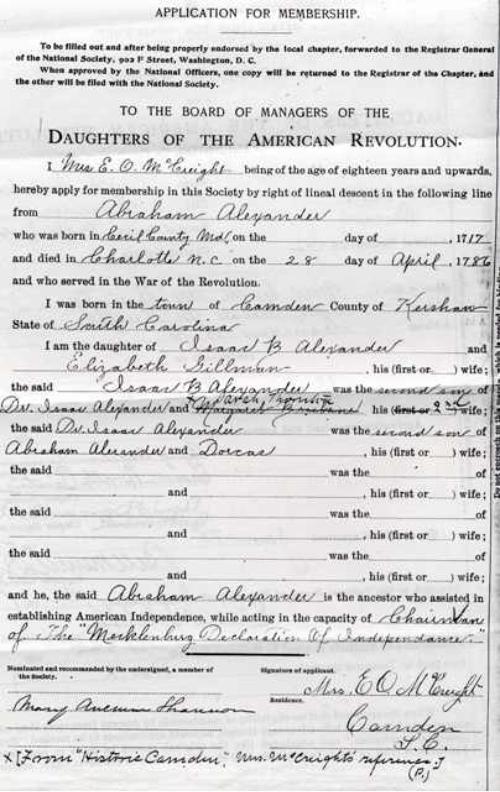 APPLICATION FOR MEMBERSHIP.
To be filled out and after being properly endorsed by the local chapter, forwarded to the Registrar General
of the National Society, 902 F Street, Washington, D. C.
When approved by the National Officers, one copy will be returned to the Registrar of the Chapter, and
the other will be filed with the National Society.
TO THE BOARD OF MANAGERS OF THE
DAUGHTERS OF THE AMERICAN REVOLUTION.
I Mrs E. O. McCreight being of the age of eighteen years and upwards,
hereby apply for membership in this Society by right of lineal descent in the following line
from Abraham Alexander
who was born in Cecil County Md on the day of , 1717
and died in Charlotte N.C on the 28 day of April, 1786
and who served in the War of the Revolution.
I was born in the town of Camden County of Kershaw
State of South Carolina
I am the daughter of Isaac B Alexander and
Elizabeth Gillman , his (first or ) wife;
the said Isaac B Alexander was the second son of
x Sarah Thornton
Dr. Isaac Alexander and Margaret Brisbane his (first or 2d wife;
the said Dr. Isaac Alexander was the second son of
Abraham Alexander and Dorcas , his (first or ) wife;
the said was the of
and , his (first or ) wife;
the said was the of
and , his (first or ) wife;
the said was the of
and , his (first or ) wife;
and he, the said Abraham Alexander is the ancestor who assisted in
establishing American Independence, while acting in the capacity of Chairman
of The "Mecklenburg Declaration Of Independance."
Nominated and recommended by the undersigned, a member of
the Society.
Signature of applicant.
Mrs. E O McCreight
Residence.
Mary Shannon
Camden
S. C.
x [From "Historic Camden", Mrs. McCreight's reference.]
(P.)